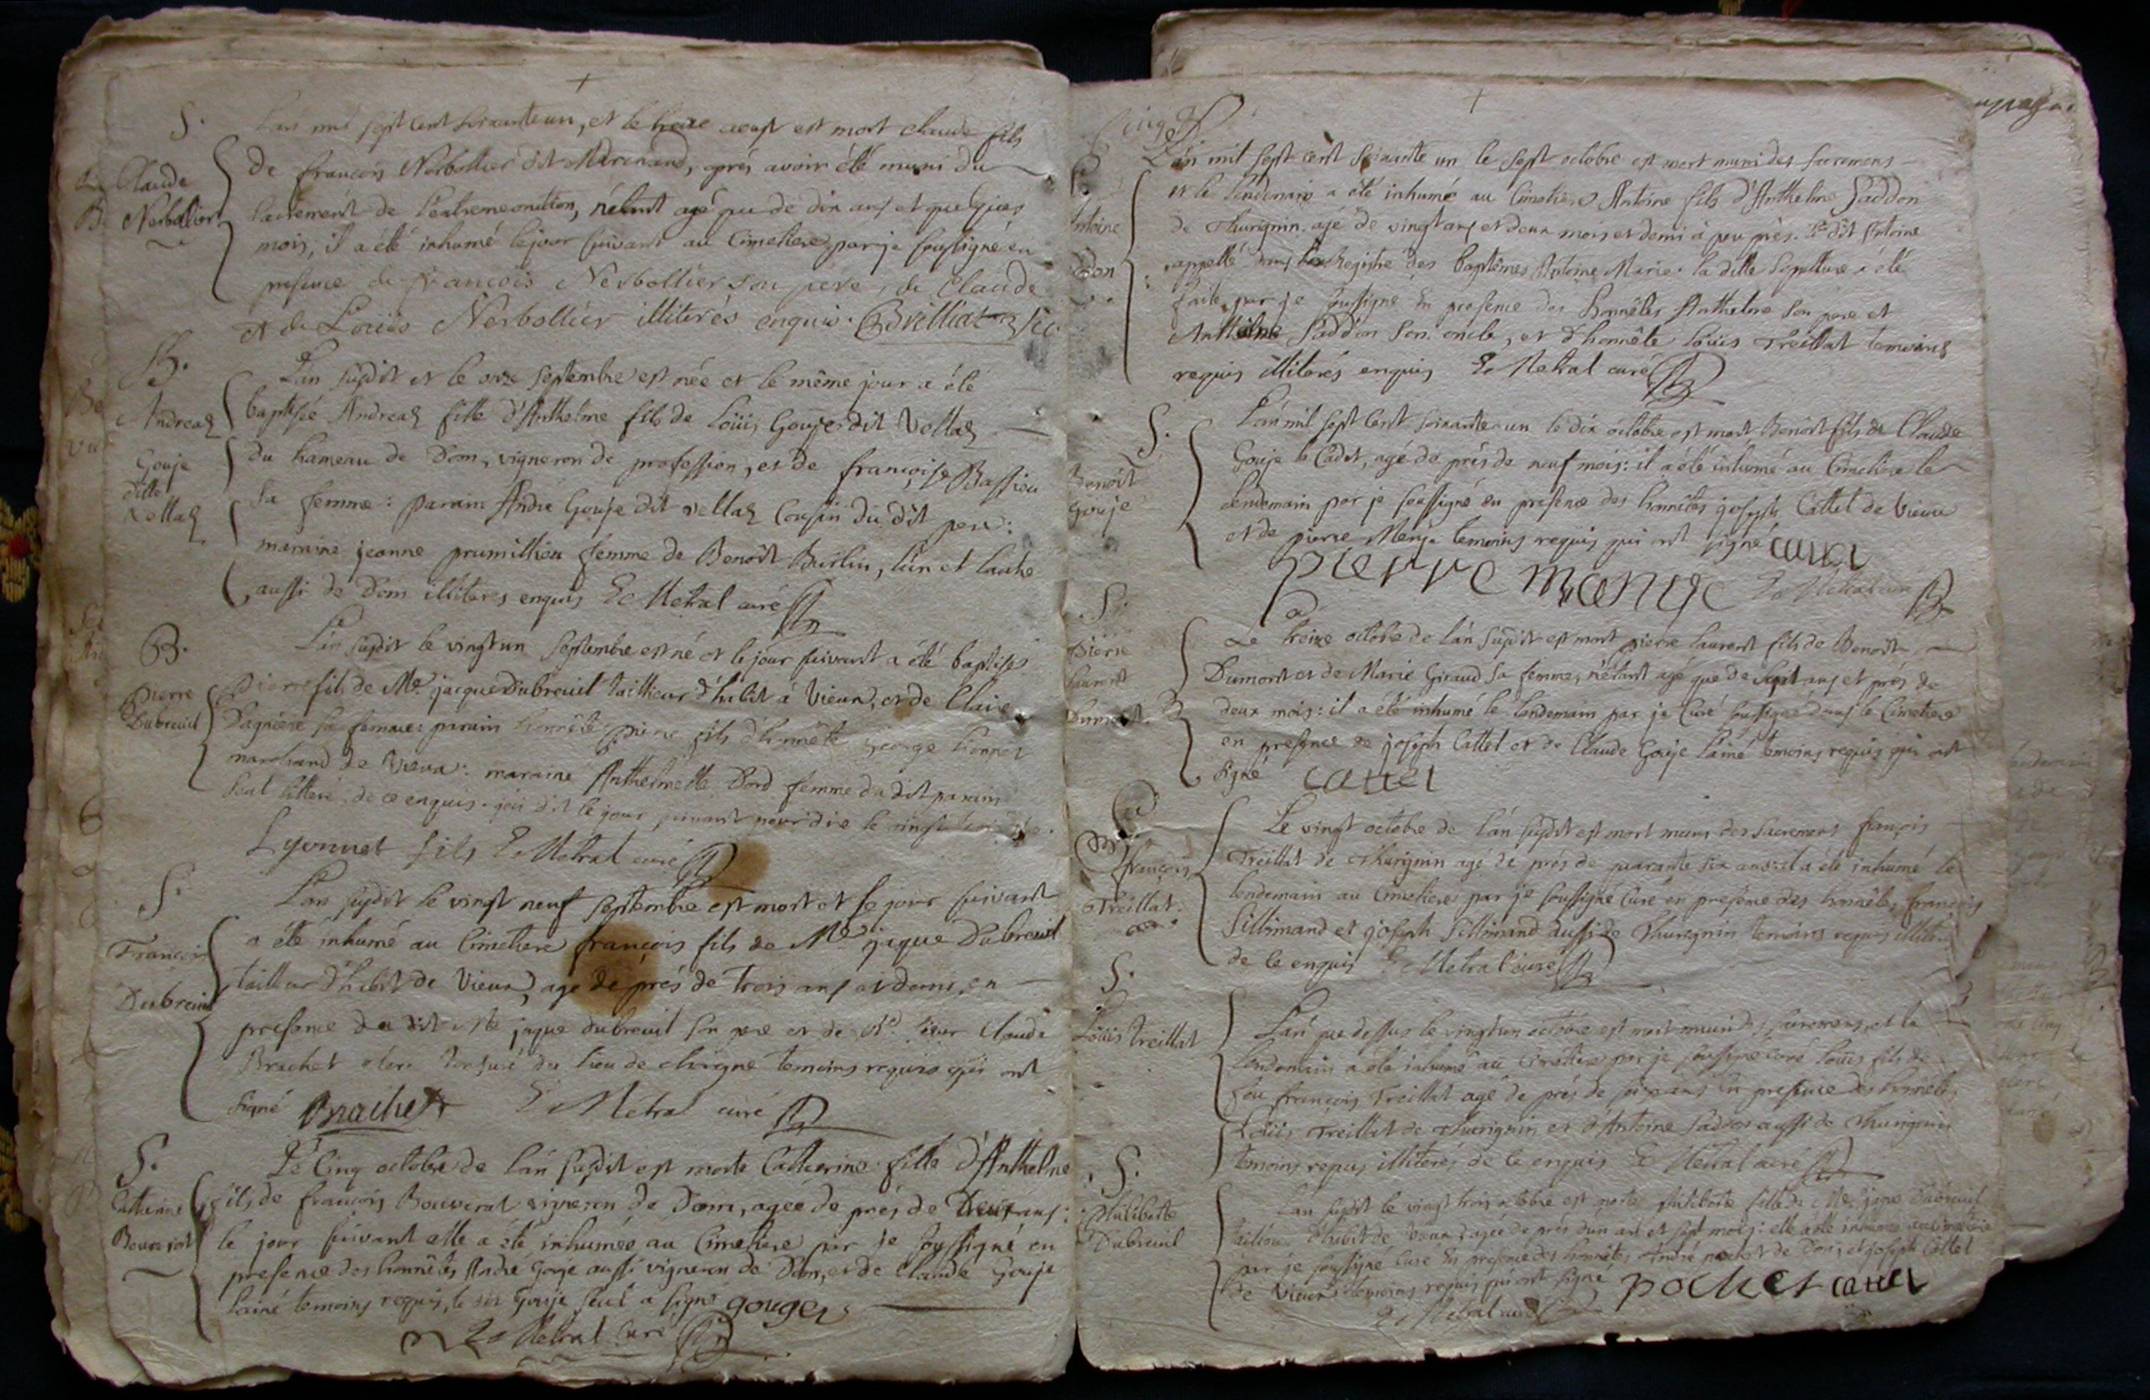 S.
Claude
Nerbollier
L'an mil sept cent soixante un, et le treize aoust est mort Claude fils
de françois Nerbollier dit Marchand, après avoir été muni du
sacrement de l'extremeonction, n'étant agé que de dix ans et quelques
mois, il a été inhumé le jour suivant au Cimetiere par je soussigné en
presence de françois Nerbollier son pere, de Claude
et de Loüis Nerbollier illiterés enquis. Brilliat
B.
Andrea
Gouje
ditte
Vella
L'an susdit et le onze septembre est née et le même jour a été
baptisée Andrea fille d'Anthelme fils de Loüis Gouje dit Vella
du hameau de Dom, vigneron de profession, et de françoise Bassieu
sa femme: parain André Gouje dit vella Cousin du dit pere:
maraine jeanne prumillieu femme de Benoît Burlin, l'un et l'autre
aussi de Dom illiteres enquis Metral curé
B.
Pierre
Dubreuil
L'an susdit le vingt un septembre est né et le jour suivant a été baptisé
Pierre fils de Me. jacque Dubreuil tailleur d'habit à Vieux, et de Claire
sa femme: parain honnête Pierre fils d'honnête George
marchand de Vieux: maraine Anthelmette Dord femme du dit parain
seul litteré, de ce enquis. j'ai dit le jour suivant pour dire le vingt trois
Lyonnet fils Metral curé
S.
François
Dubreuil
L'an susdit le vingt neuf septembre est mort et le jour suivant
a été inhumé au Cimetiere françois fils de Me jaque Dubreuil
tailleur d'habit de Vieux, agé de près de trois ans et demi, en
presence du dit Me jaque dubreuil son pere et de Sieur Claude
Brachet clerc tonsuré du lieu de temoins requis qui ont
signé Brachet Metral curé
S.
Catherine
Bouvrot
Le Cinq octobre de l'an susdit est morte Catherine fille d'Anthelme
fils de françois Bouverat vigneron de Dom, agée de près de
le jour suivant elle a été inhumée au Cimetiere par je soussigné en
presence des honnêtes André Gouje aussi vigneron de Dom, et de Claude Gouje
l'ainé temoins requis, le sr. Gouje seul a signé gouge
Metral Curé
cinq
S
Antoine
L'an mil sept cent soixante un le sept octobre est mort muni des sacremens
et le lendemain a été inhumé au Cimetiere Antoine fils d'Anthelme Saddon
de Thurignin, agé de vingt ans et deux mois et demi à peu près. le dit Antoine
appellé dans les Registre des baptêmes Antoine Marie. la ditte sepulture a été
faite par je soussigné en presence des honnêtes Anthelme son pere et
Anthelme Saddon son oncle, et d'honnête Loüis Treillat temoins
requis illiterés enquis Metral curé
S.
Benoît
Gouje
L'an mil sept cent soixante un le dix octobre est mort Benoît fils de Claude
Gouje le Cadet, agé de près de neuf mois: il a été inhumé au Cimetiere le
lendemain par je soussigné en presence des honnêtes joseph Cattel de Vieux
et de pierre Monje temoins requis qui ont signé cattel
pierre monge Metral curé
S.
Pierre
laurent
Dumont
Le treize octobre de l'an susdit est mort pierre laurent fils de Benoît
Dumont et de Marie Giraud sa femme, n'étant agé que de sept ans et près de
deux mois: il a été inhumé le lendemain par je Curé soussigné dans le Cimetiere
en presence de joseph Cattel et de Claude Gouje l'ainé temoins requis qui ont
signé cattel
françois
Treillat
Le vingt octobre de l'an susdit est mort muni des sacremens françois
Treillat de Thurignin agé de près de quarante six ans et a été inhumé le
lendemain au Cimetiere par je soussigné Curé en presence des honnêtes françois
Sillimand et joseph Sillimand aussi de Thurignin temoins requis
de ce enquis Metral curé
S.
Loüis Treillat
L'an que dessus le vingt un octobre est mort muni des sacremens, et le
lendemain a été inhumé au Cimetiere par je soussigné curé Loüis fils de
feu françois Treillat agé de près de ans en presence des honnêtes
Loüis Treillat de Thurignin et d'Antoine Saddon aussi de Thurignin
temoins requis illiterés de ce enquis Metral curé
S.
Philiberte
Dubreuil
L'an susdit le vingt trois octobre est morte philiberte fille de Me. jaque Dubreuil
tailleur d'habit de Vieux, agée de près d'un an et sept mois: elle a été inhumée au Cimetiere
par je soussigné Curé en presence des honnêtes André pochet de Don, et joseph Cattel
de Vieux temoins requis qui ont signé pochet cattel
Metral curé